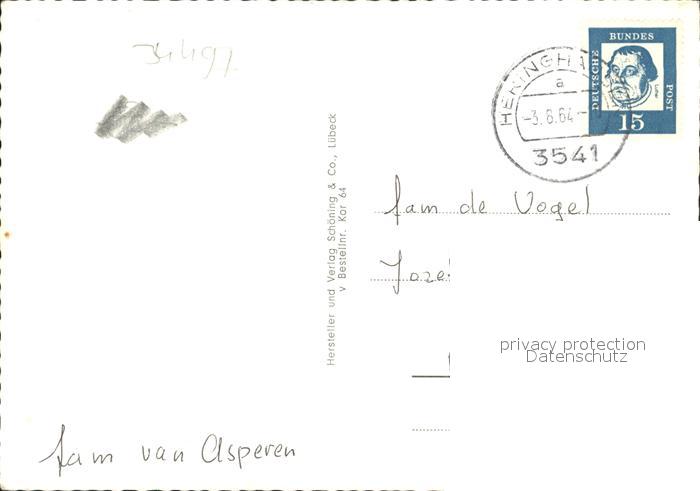 34497
HERINGHA
a
-3.8.64.-
3541
DEUTSCHE
BUNDES
POST
15
Hersteller und Verlag Schöning & Co., Lübeck
v Bestellnr. Kor 64
fam de Vogel
Joze
privacy protection
Datenschutz
fam van Asperen